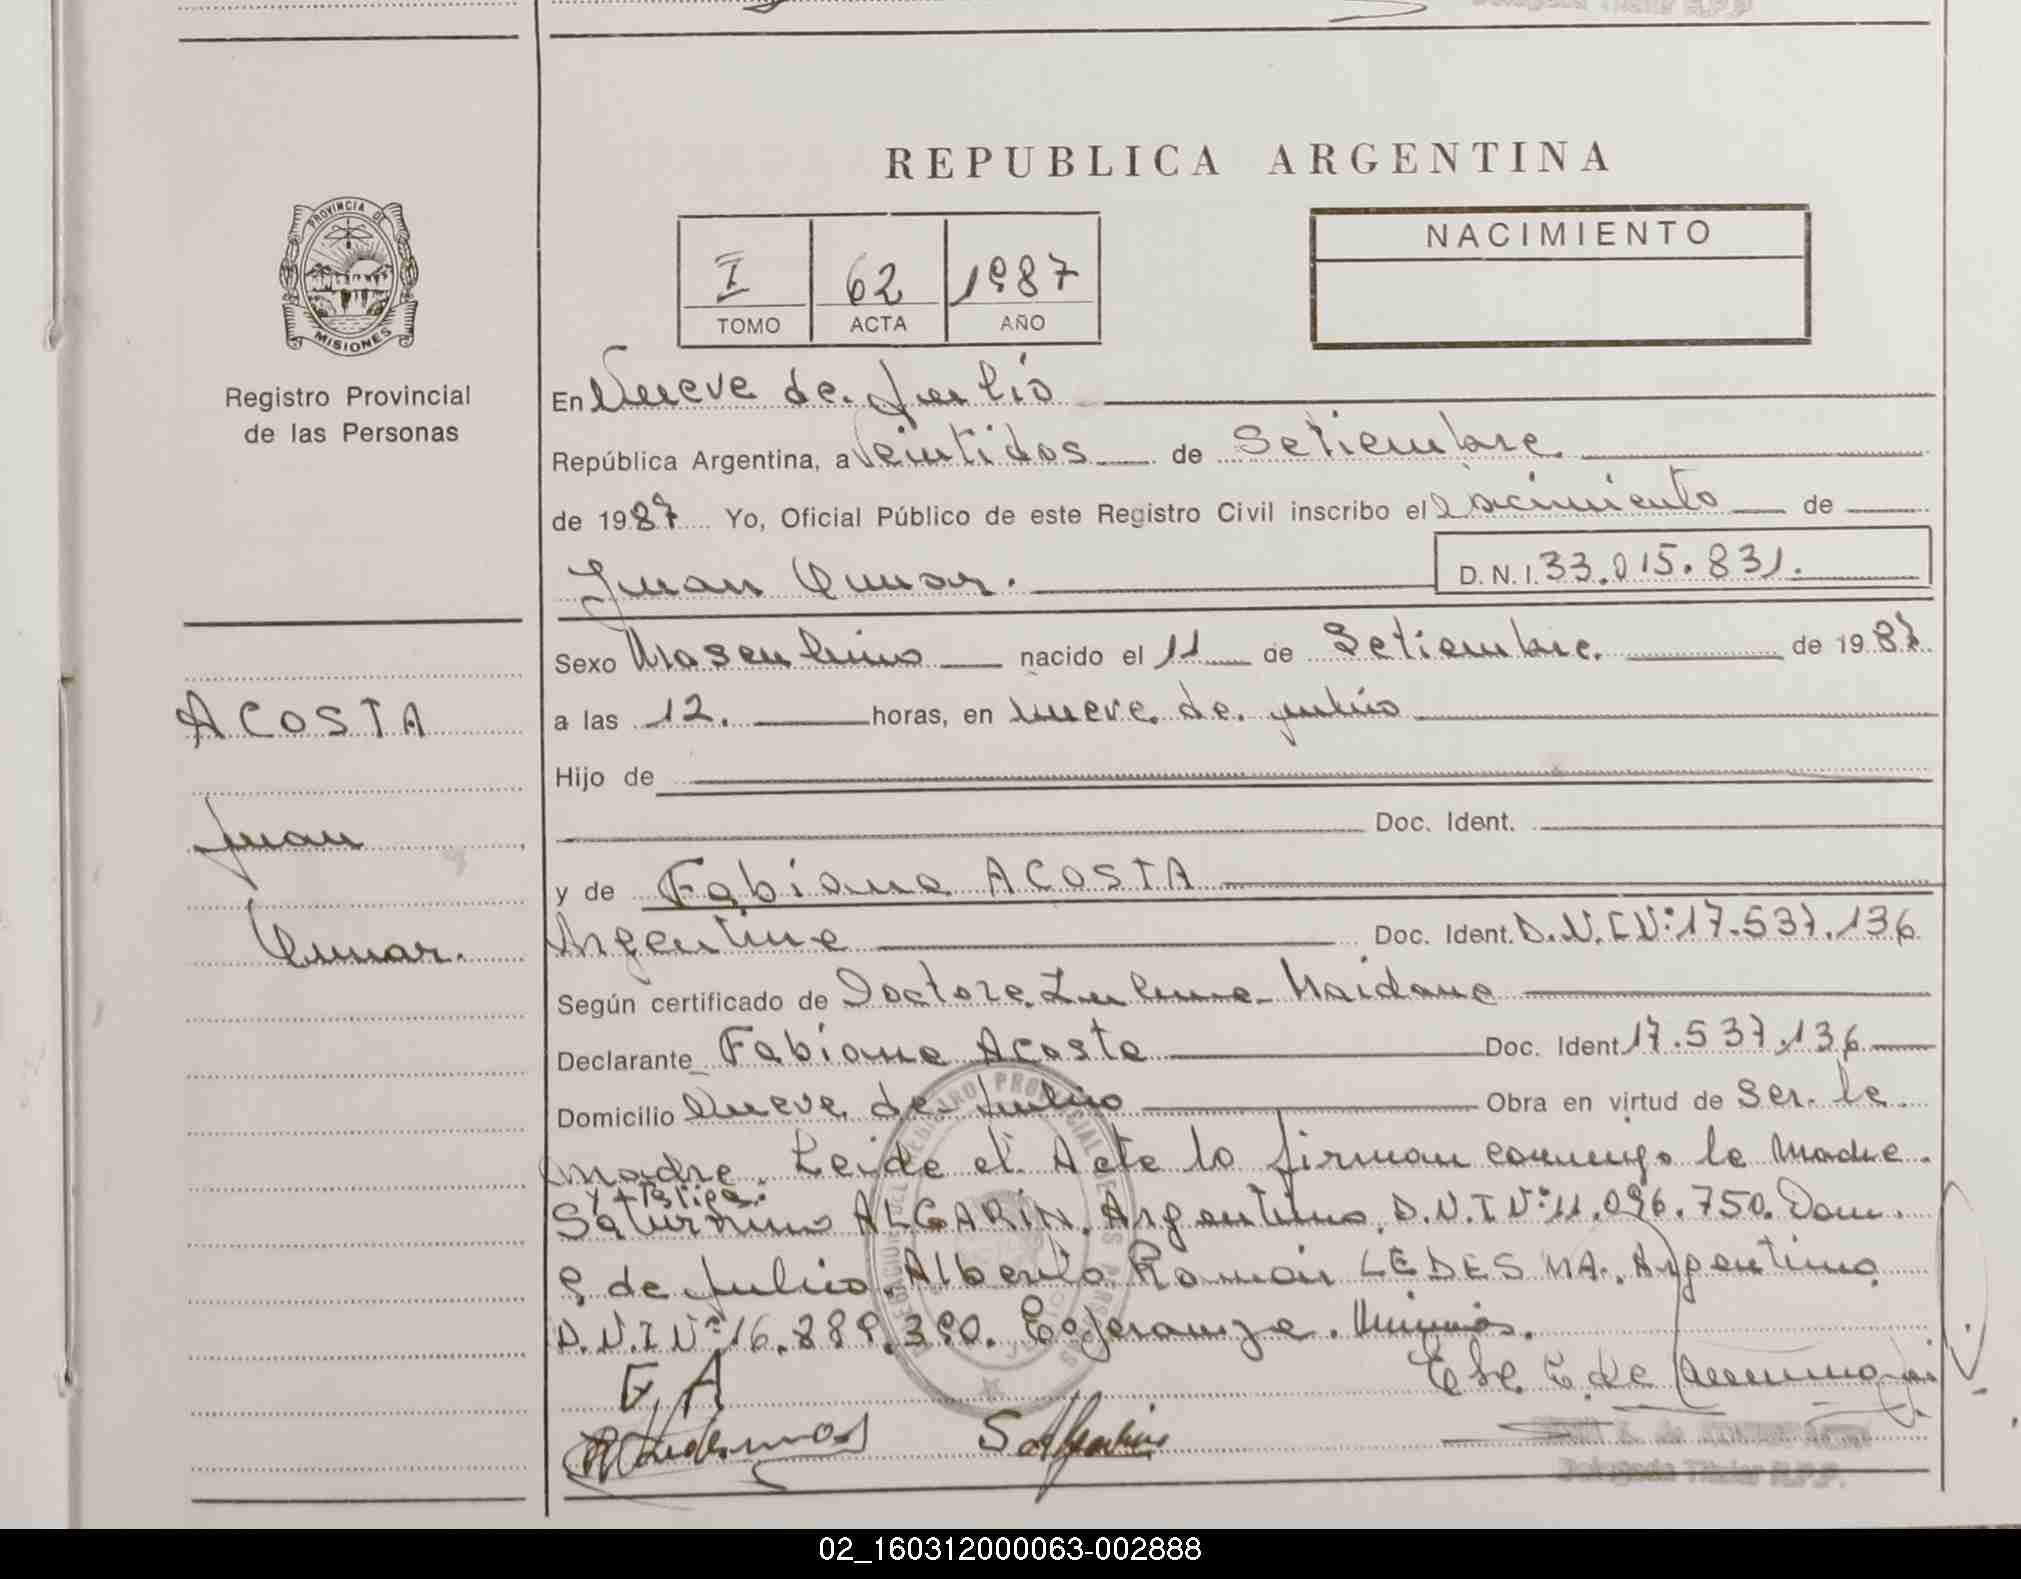 REPUBLICA ARGENTINA
PROVINCIA DE
MISIONES
Registro Provincial
de las Personas
I 62 1987
TOMO ACTA AÑO
NACIMIENTO
En Nueve de Julio
República Argentina, a Veintidos de Setiembre
de 1987 Yo, Oficial Público de este Registro Civil inscribo el nacimiento de
Juan Omar. D.N.I. 33.015.831.
Sexo Masculino nacido el 11 de Setiembre. de 1987.
ACOSTA
a las 12. horas, en nueve de julio
Hijo de
Doc. Ident.
Juan
y de Fabiana ACOSTA
Omar.
Argentina Doc. Ident. D.N.I Nº: 17.537.136
Según certificado de Doctora Zulma Maidana
Declarante Fabiana Acosta Doc. Ident 17.537.136
Domicilio Nueve de Julio Obra en virtud de Ser la
madre. Leida el Acta lo firman conmigo la Madre.
y testigos:
Saturnino ALGARIN, Argentino, D.N.I Nº: 11.096.750. Dom.
9 de Julio. Alberto Ramón LEDESMA, Argentino
D.N.I Nº 16.889.390. Esperanza. Misiones.
F, A
Delegada Titular R.P.P.
02_160312000063-002888